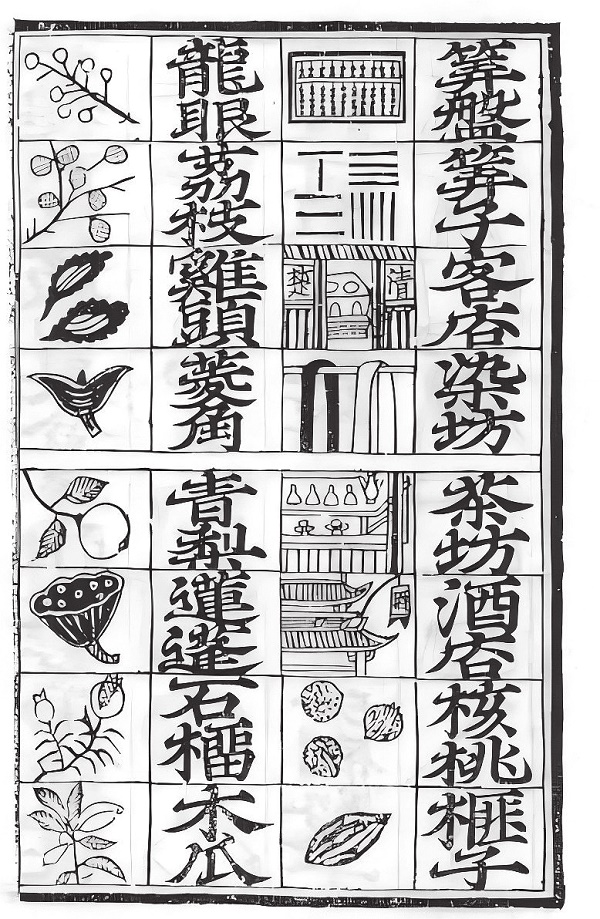 筭盤
筭子
客店
楚 清
染坊
茶坊
酒店
核桃
榧子
龍眼
荔枝
雞頭
菱角
青梨
蓮蓬
石榴
木瓜